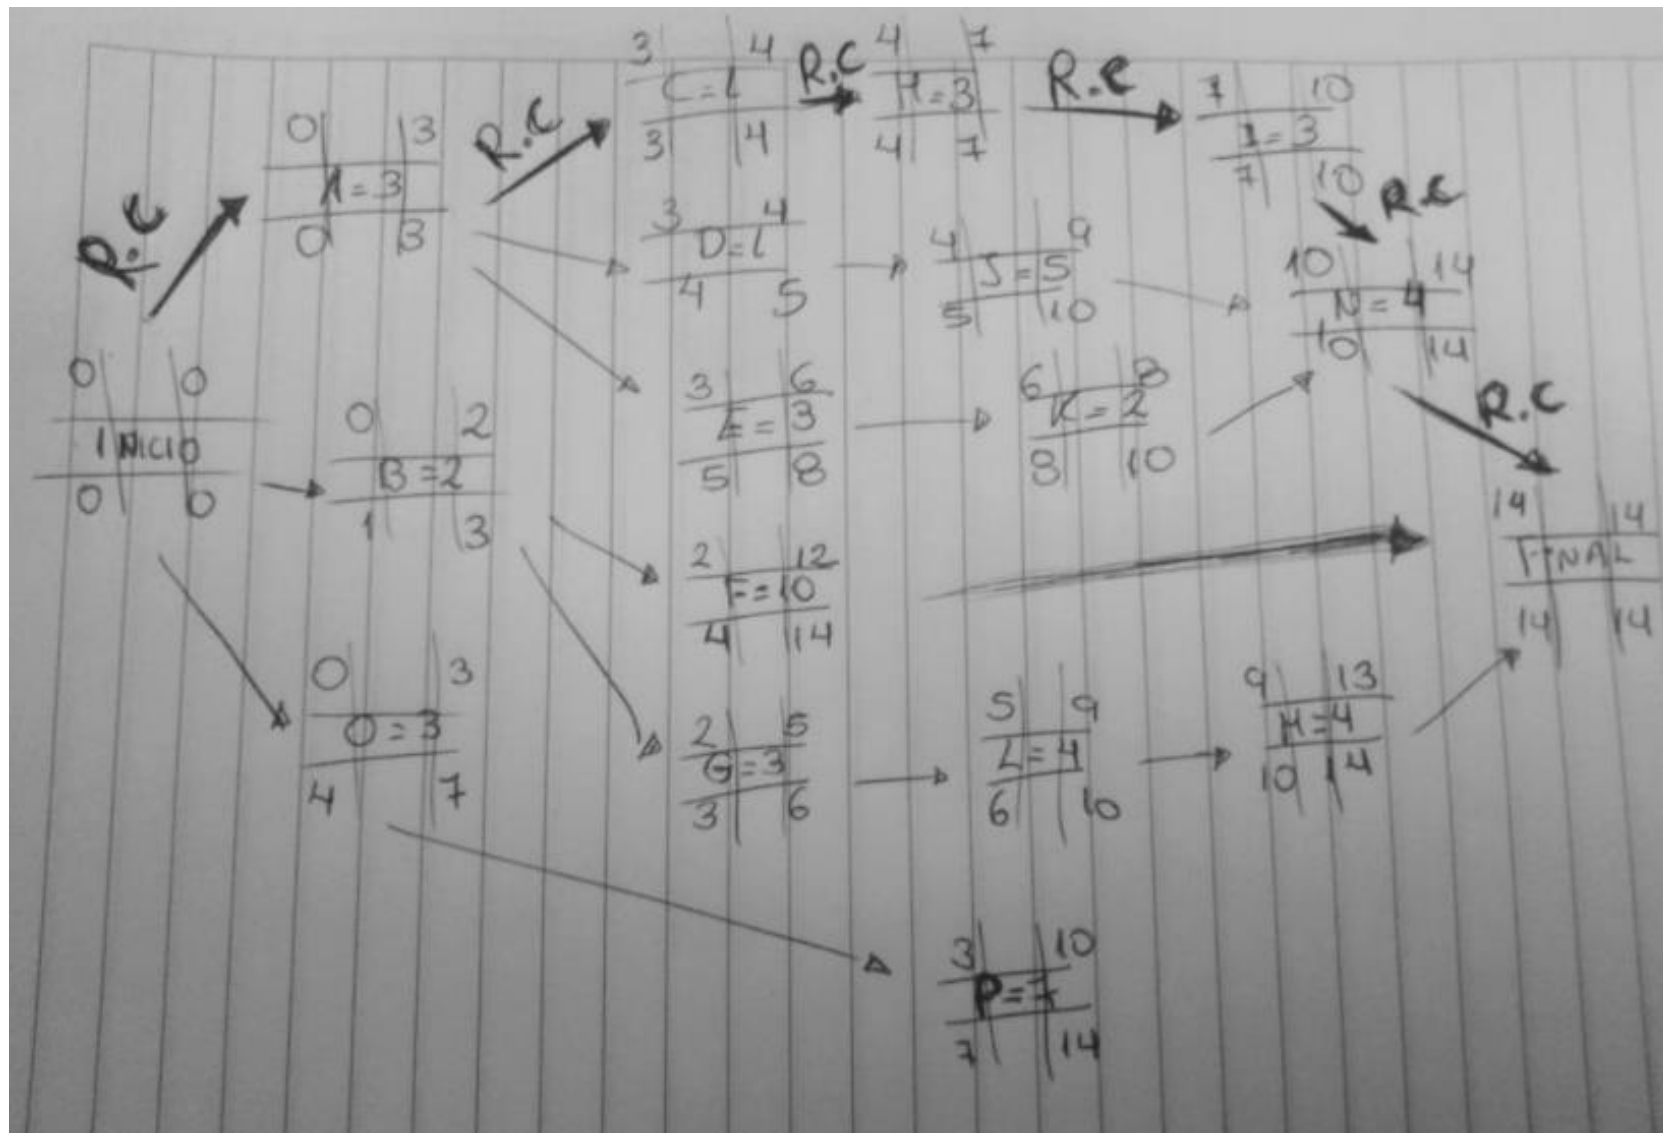 3 4
C=1
3 4
R.C
4 7
H=3
4 7
R.C
7 10
I=3
7 10
R.C
0 3
A=3
0 3
R.C
R.C
3 4
D=1
4 5
4 9
J=5
5 10
10 14
N=4
10 14
R.C
0 0
INICIO
0 0
0 2
B=2
1 3
3 6
E=3
5 8
6 8
K=2
8 10
2 12
F=10
4 14
14 14
FINAL
14 14
0 3
O=3
4 7
2 5
G=3
3 6
5 9
L=4
6 10
9 13
M=4
10 14
3 10
P=7
7 14